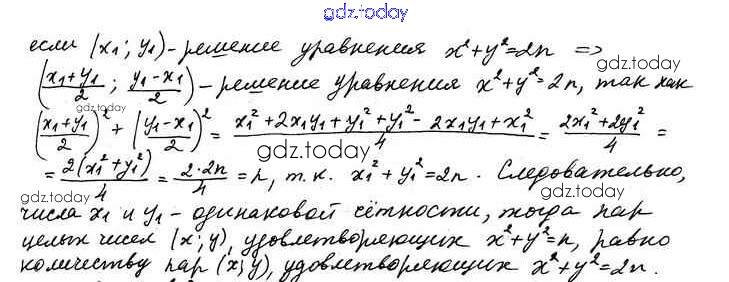 gdz.today
если (x₁; y₁) - решение уравнения x²+y²=2n =>
gdz.today
((x₁+y₁)/2 ; (y₁-x₁)/2) - решение уравнения x²+y²=2n, так как
gdz.today
((x₁+y₁)/2)² + ((y₁-x₁)/2)² = (x₁²+2x₁y₁+y₁²+y₁²-2x₁y₁+x₁²)/4 = (2x₁²+2y₁²)/4 =
gdz.today
= 2(x₁²+y₁²)/4 = 2·2n/4 = n, т.к. x₁²+y₁²=2n. Следовательно,
gdz.today gdz.today
числа x₁ и y₁ - одинаковой чётности, тогда пар
целых чисел (x; y), удовлетворяющих x²+y²=n, равно
gdz.today
количеству пар (x; y), удовлетворяющих x²+y²=2n.
gdz.today